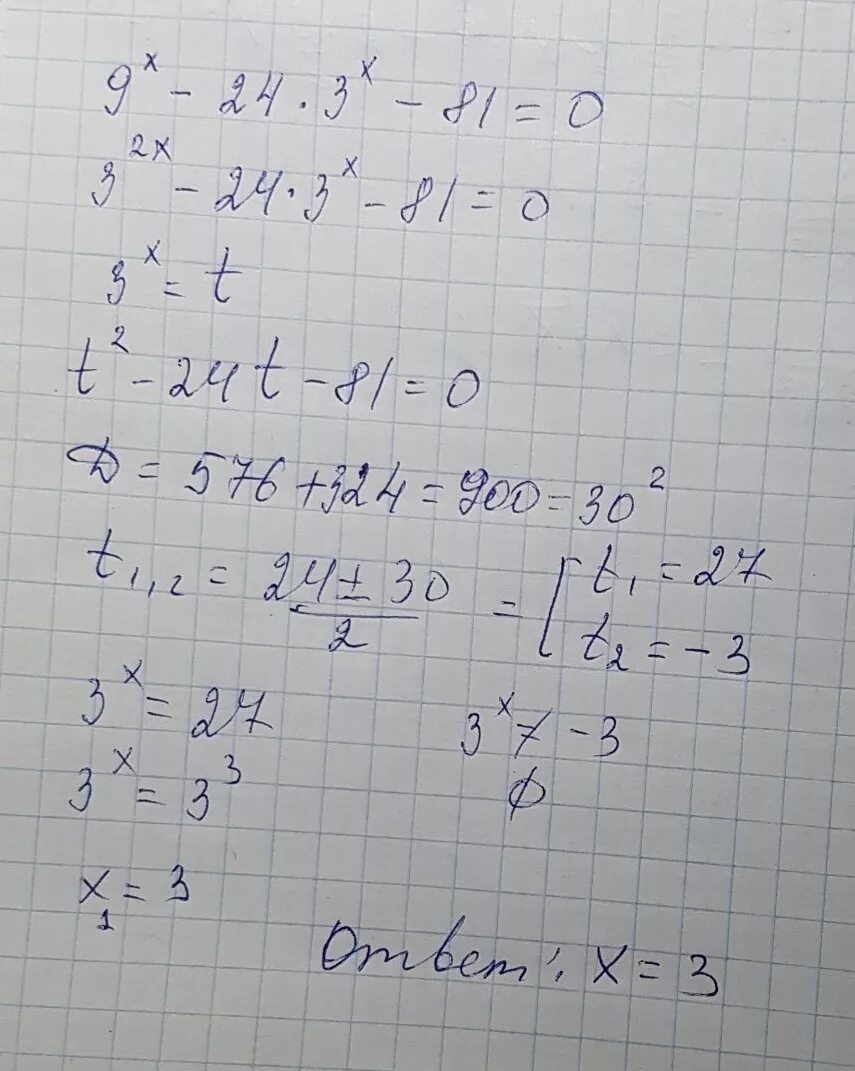 9^x - 24 · 3^x - 81 = 0
3^2x - 24 · 3^x - 81 = 0
3^x = t
t^2 - 24t - 81 = 0
D = 576 + 324 = 900 = 30^2
t1,2 = (24 ± 30)/2 = [ t1 = 27
t2 = -3
3^x = 27
3^x = 3^3
x1 = 3
3^x ≠ -3
∅
Ответ: x = 3